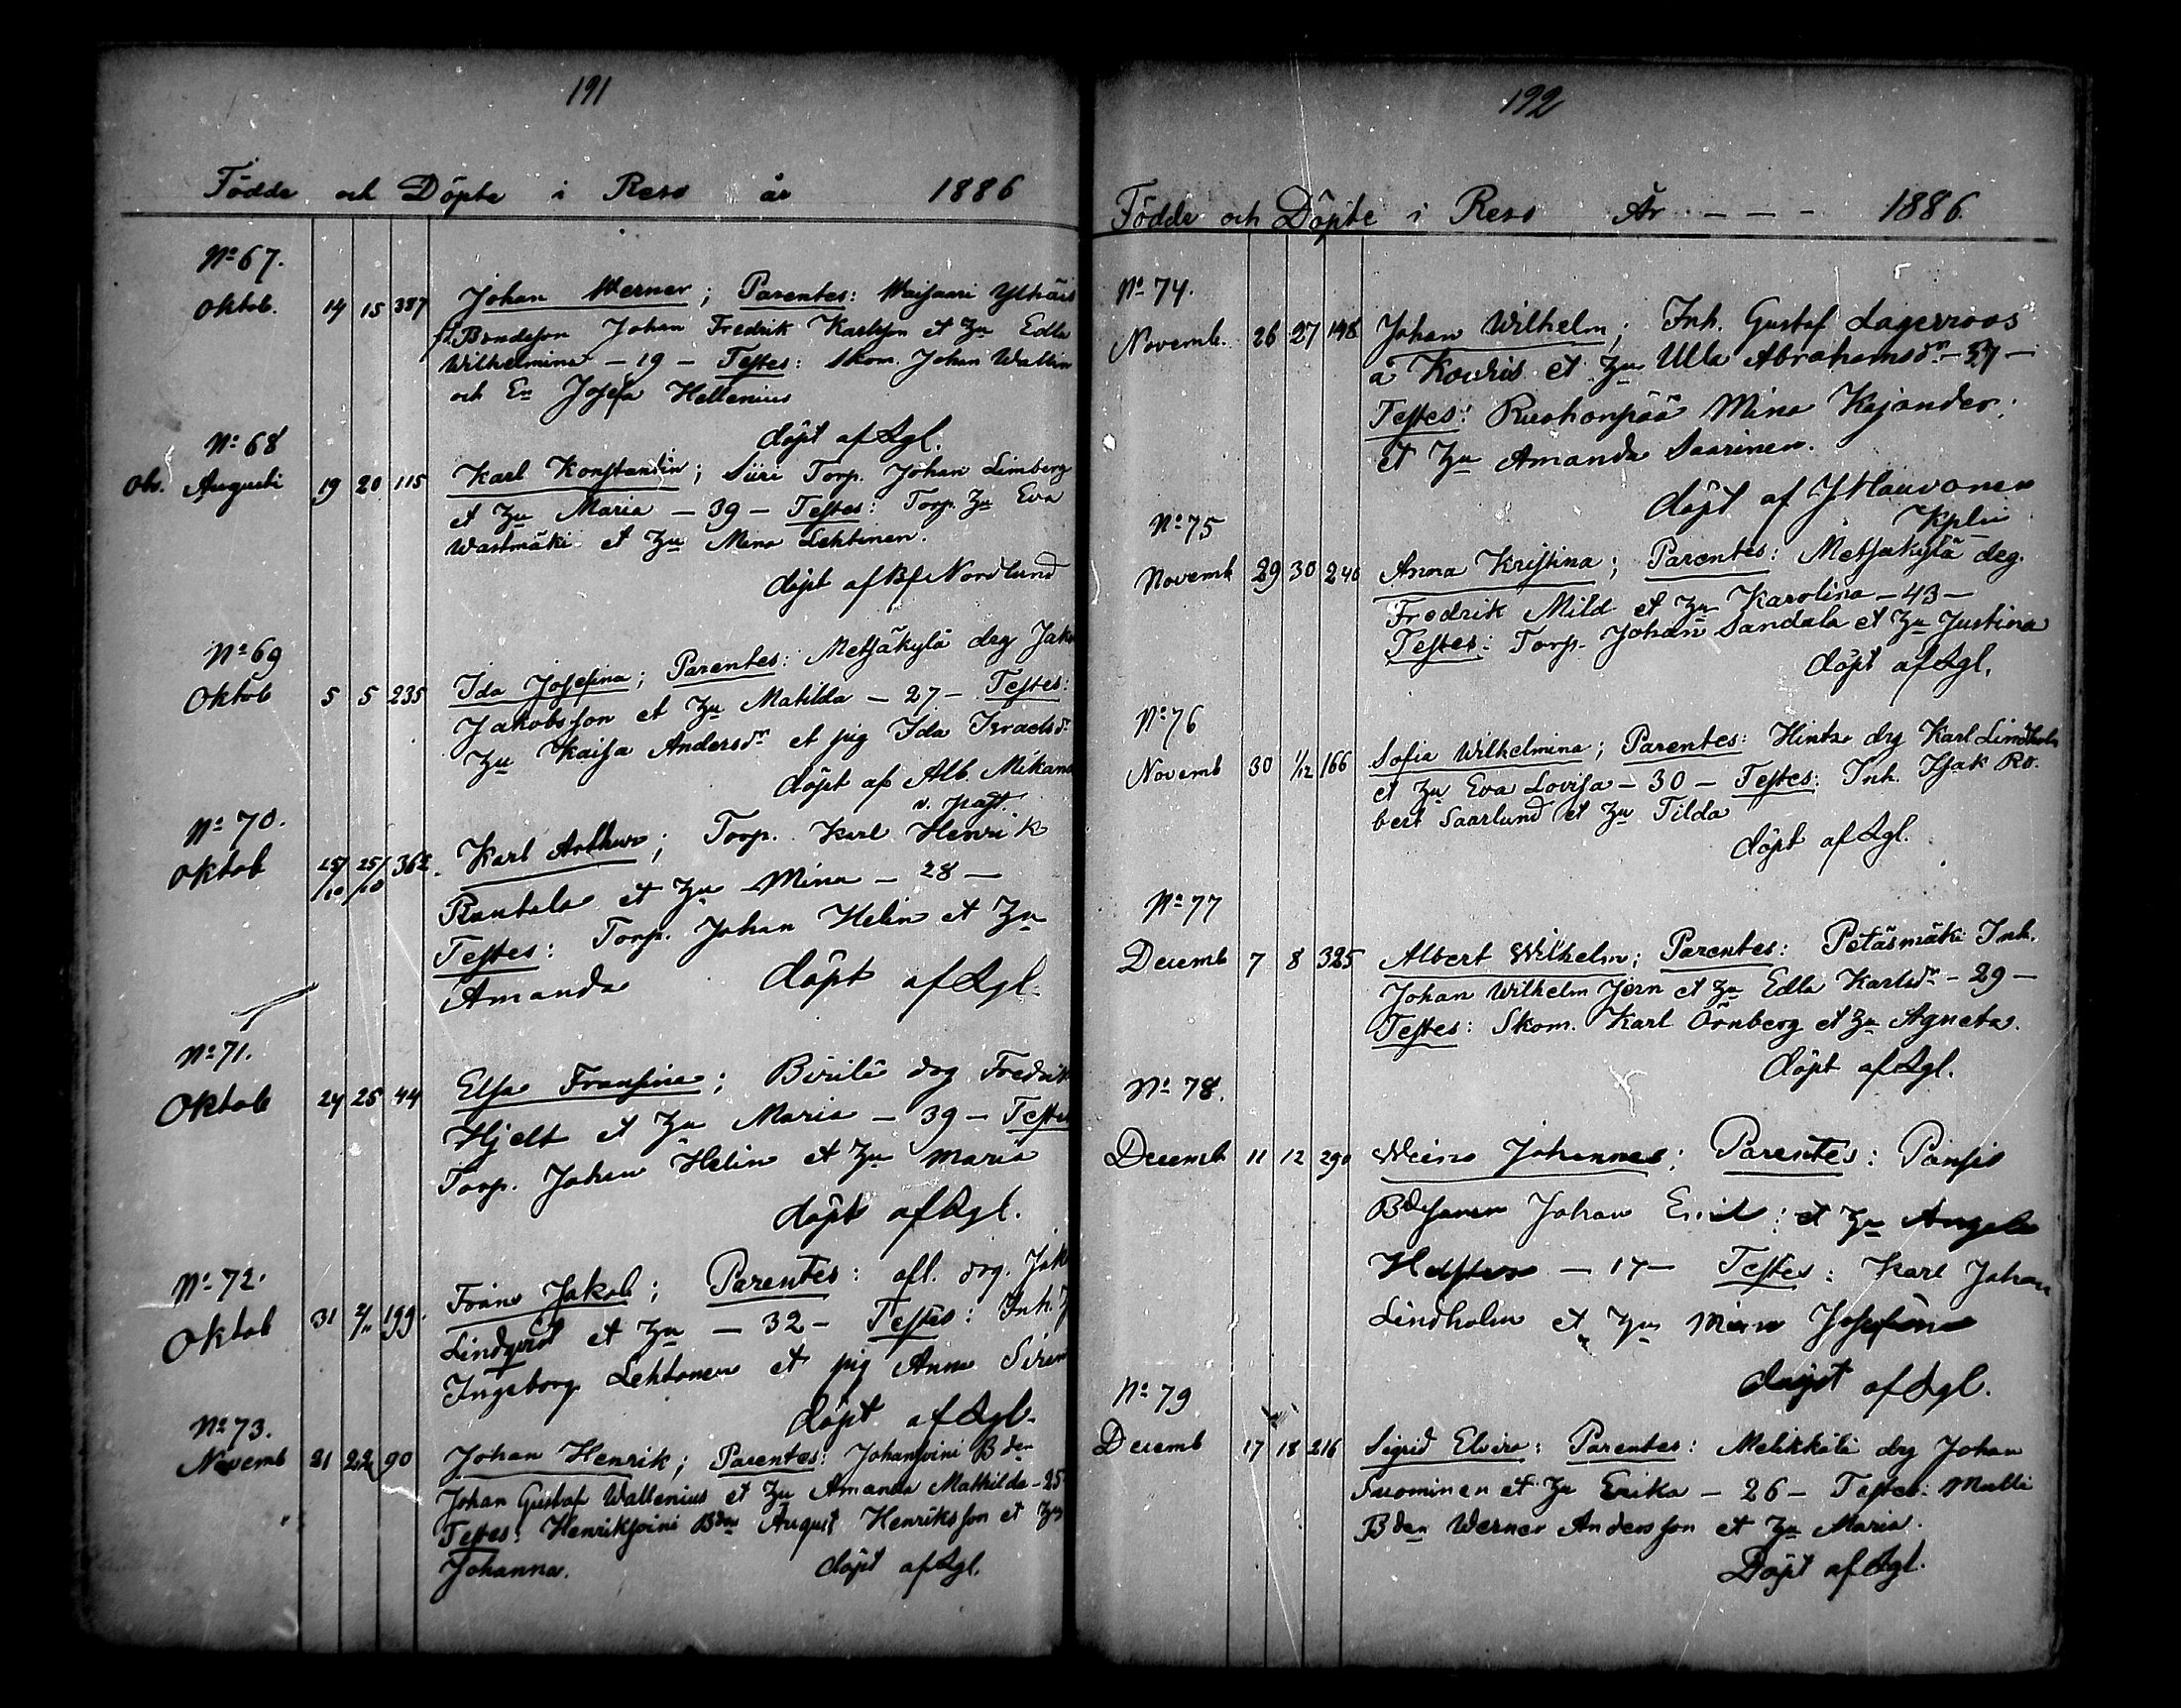 191
Födde och Döpte i Reso år 1886
No 67.
Oktob. 14 15 387 Johan Werner; Parentes: Waisaari Ylhäis
fl. Bondeson Johan Fredrik Karlsson et Hu Edla
Wilhelmina - 19 - Testes: Skom. Johan Wallin
och En Josefa Hellenius
döpt af Lgl.
No 68
Obs. Augusti 19 20 115 Karl Konstantin; Siiri Torp. Johan Limberg
et Hu Maria - 39 - Testes: Torp. Hu Eva
Wastmäki et Hu Mina Lehtinen.
döpt af Bf Nordlund
No 69
Oktob 5 5 235 Ida Josefina; Parentes: Metsäkylä drg Jak
Jakobsson et Hu Matilda - 27 - Testes:
Hu Kaisa Andersdr et pig Ida Israelsdr
döpt af Alb. Mikan
v. past.
No 70.
Oktob 25/10 25/10 362. Karl Arthur; Torp. Karl Henrik
Rantala et Hu Mina - 28 -
Testes: Torp. Johan Helin et Hu
Amanda döpt af Lgl.
No 71.
Oktob 24 25 44 Elsa Fransina; Birilä drg Fredrik
Hjelt et Hu Maria - 39 - Testes
Torp. Johan Helin et Hu Maria
döpt af Lgl.
No 72.
Oktob 31 2/11 199. Frans Jakob; Parentes: afl. drg. Jak
Lindqvist et Hu - 32 - Testes: Inh. J
Ingeborg Lehtonen et pig Anna Siren
döpt af Lgl.
No 73.
Novemb 21 22 90 Johan Henrik; Parentes: Johansoini Bden
Johan Gustaf Wallenius et Hu Amanda Mathilda - 25
Testes: Henriksoini Bden August Henriksson et Hu
Johanna. döpt af Lgl.
192
Födde och Döpte i Reso År - - - 1886
No 74.
Novemb. 26 27 148 Johan Wilhelm; Inh. Gustaf Lagerroos
å Kouris et Hu Ulla Abrahamsdr - 37 -
Testes: Ruohonpää Mina Kajander;
et Hu Amanda Saarinen.
döpt af J Hauvonen
Kplin
No 75
Novemb 29 30 240 Anna Kristina; Parentes: Metsäkylä drg.
Fredrik Mild et Hu Karolina - 43 -
Testes: Torp. Johan Sandala et Hu Justina
döpt af Lgl.
No 76
Novemb 30 1/12 166 Sofia Wilhelmina; Parentes: Hintsa drg Karl Lindholm
et Hu Eva Lovisa - 30 - Testes: Inh. Isak Ro-
bert Saarlund et Hu Tilda
döpt af Lgl.
No 77
Decemb 7 8 325 Albert Wilhelm; Parentes: Petäsmäki Inh.
Johan Wilhelm Jern et Hu Edla Karlsdr - 29 -
Testes: Skom. Karl Örnberg et Hu Agneta.
döpt af Lgl.
No 78.
Decemb 11 12 290 Weino Johannes; Parentes: Pansio
Bdsonen Johan Emil; et Hu Angela
- 17 - Testes: Karl Johan
Lindholm et Hu Mina Josefina
döpt af Lgl.
No 79
Decemb 17 18 216 Sigrid Elvira: Parentes: Melikkälä drg Johan
Suominen et Hu Erika - 26 - Testes: Mulli
Bden Werner Andersson et Hu Maria.
Döpt af Lgl.